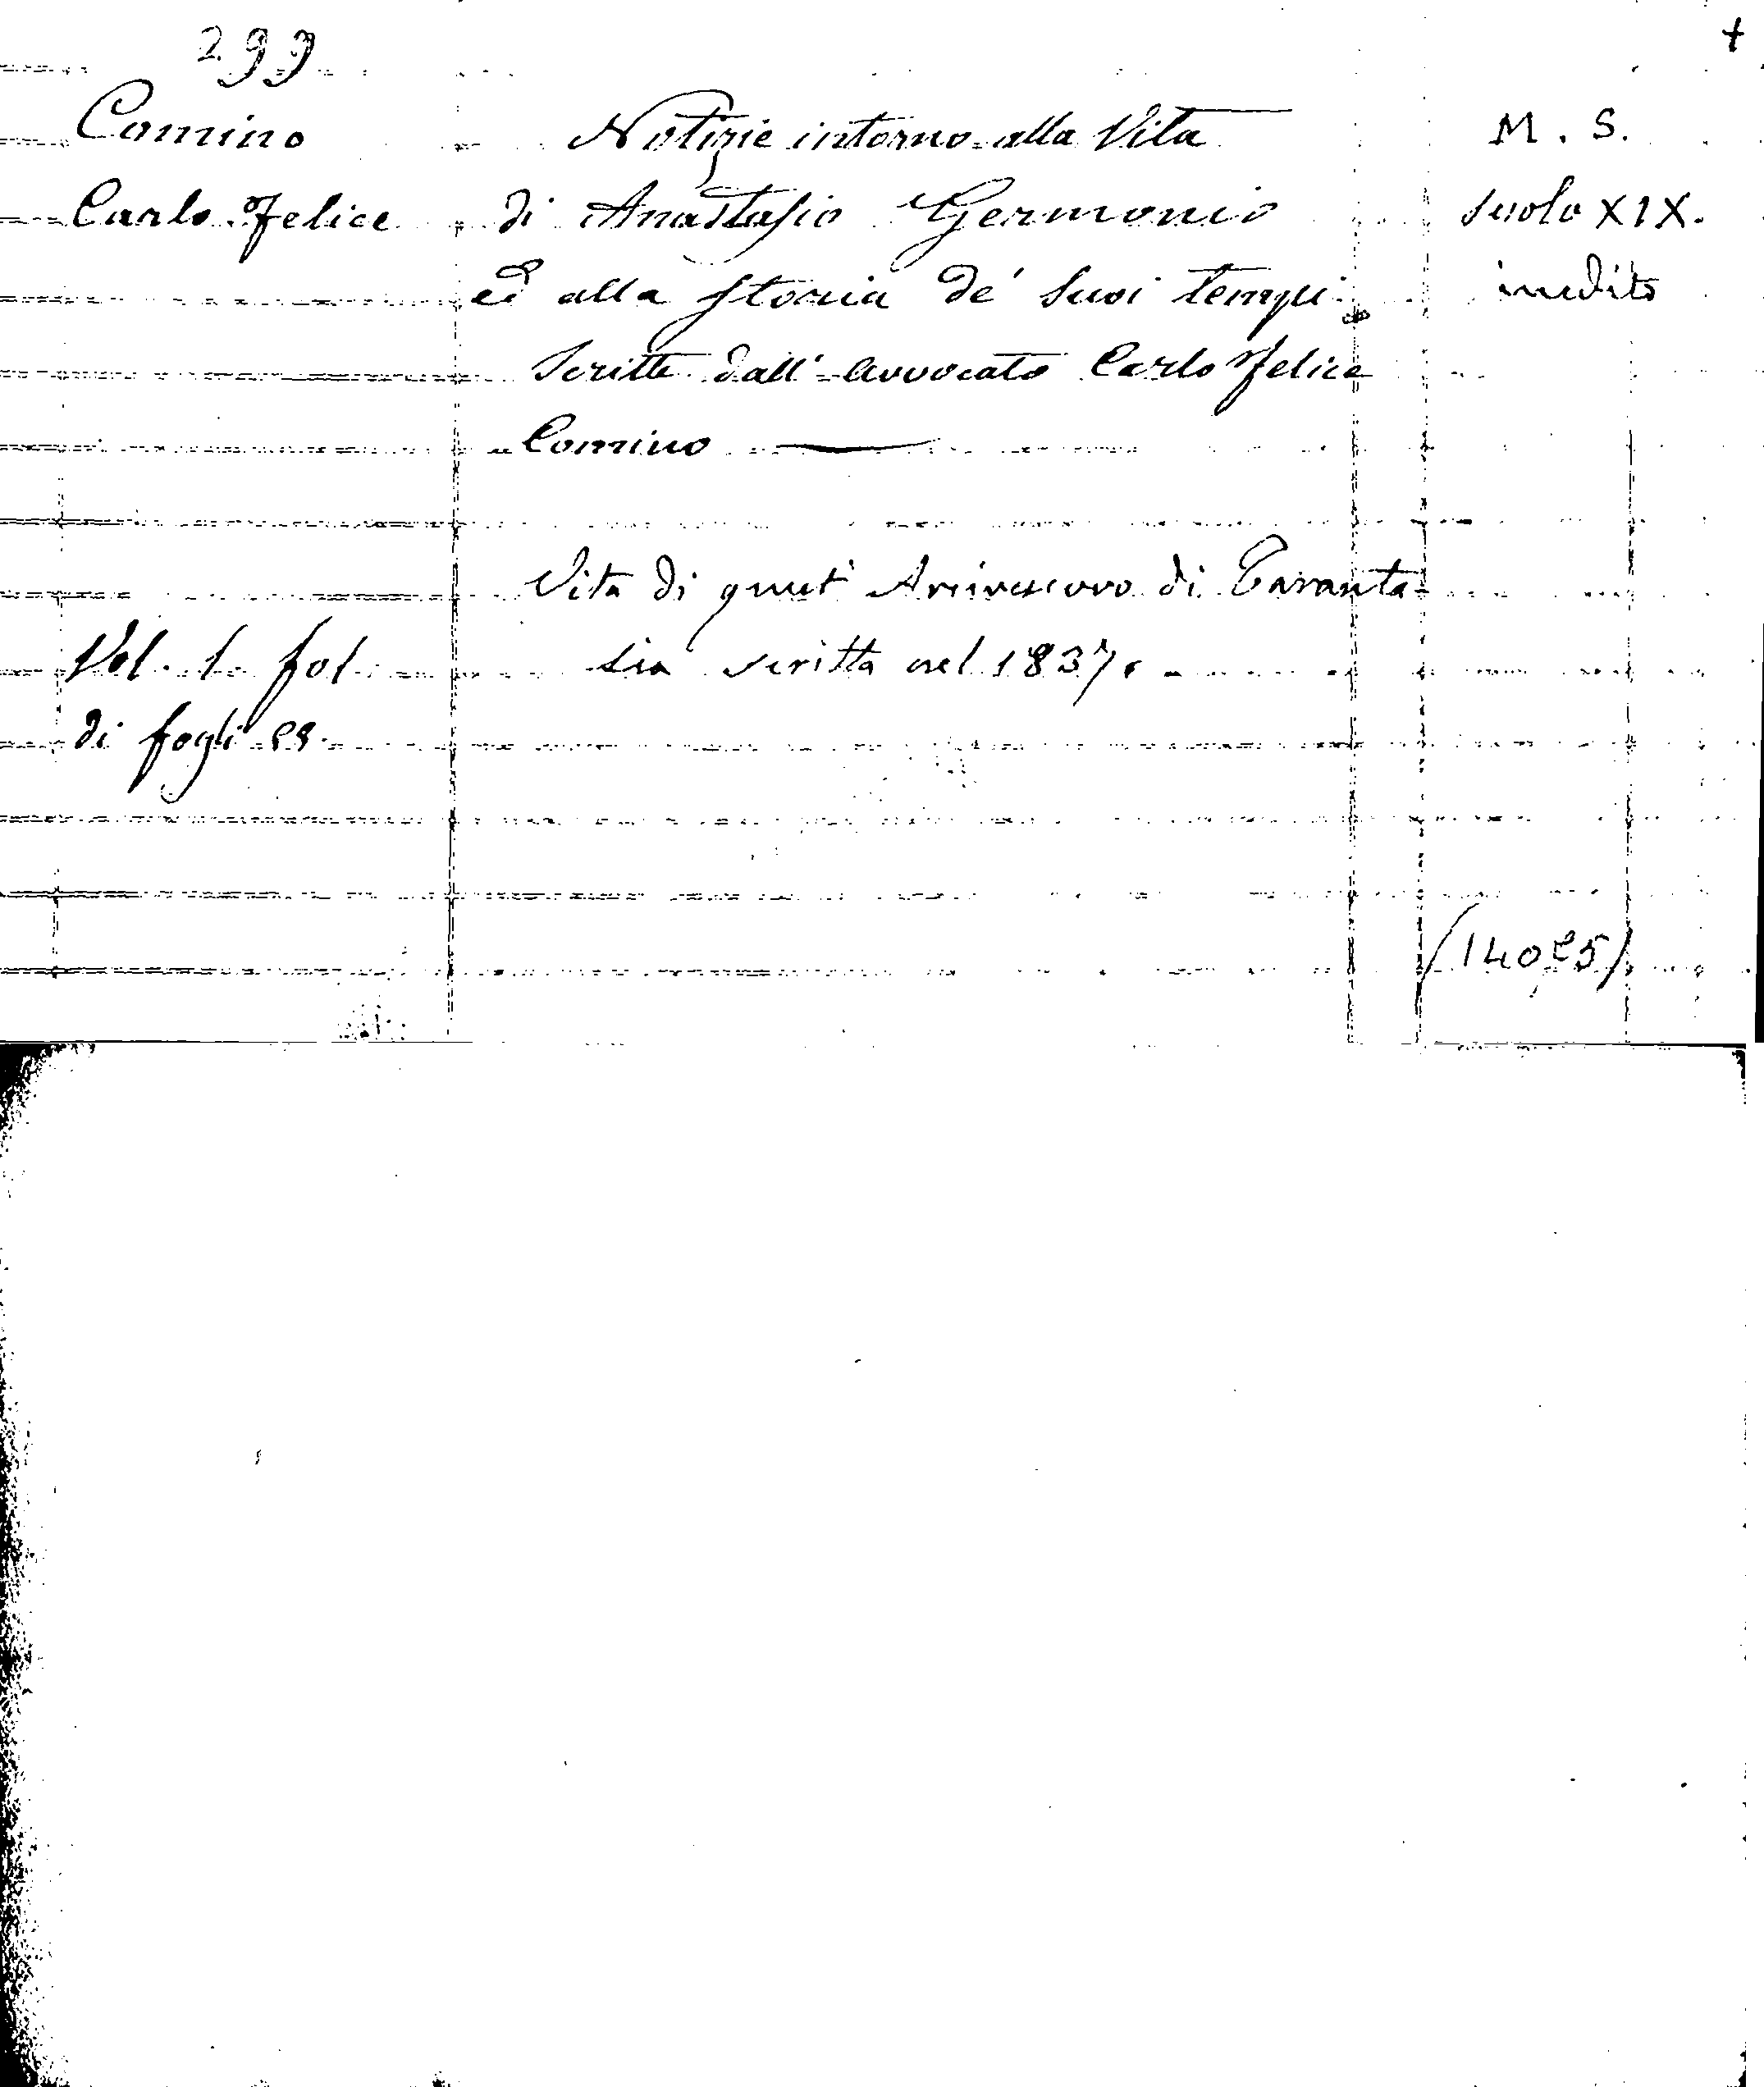 299
+
Comino
Carlo Felice
Vol. 1. fol
di fogli
Notizie intorno alla Vita
di Anastasio Germonio
ed alla Storia de' suoi tempi
Scritte dall' Avvocato Carlo Felice
Comino
Vita di quest' Arcivescovo di Taranta-
sia scritta nel 1837.
M. S.
secolo XIX.
inedito